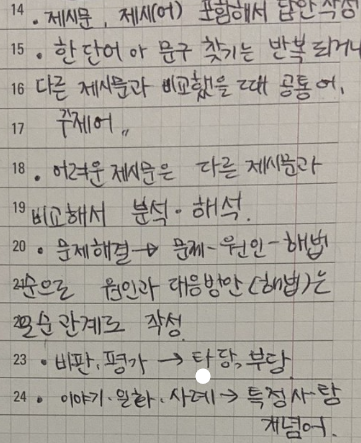 14 · 제시문, 제시(어) 포함해서 답안작성
15 · 한 단어 아 문구 찾기는 반복 되거나
16 다른 제시문과 비교했을 때 공통어,
17 주제어,,
18 · 어려운 제시문은 다른 제시문과
19 비교해서 분석·해석.
20 · 문제해결→ 문제-원인-해법
21 순으로 원인과 대응방안(해법)는
22 관계로 작성
23 · 비판.평가 → 타당, 부당.
24 · 이야기·일화·사례→ 특정사람
개념어.